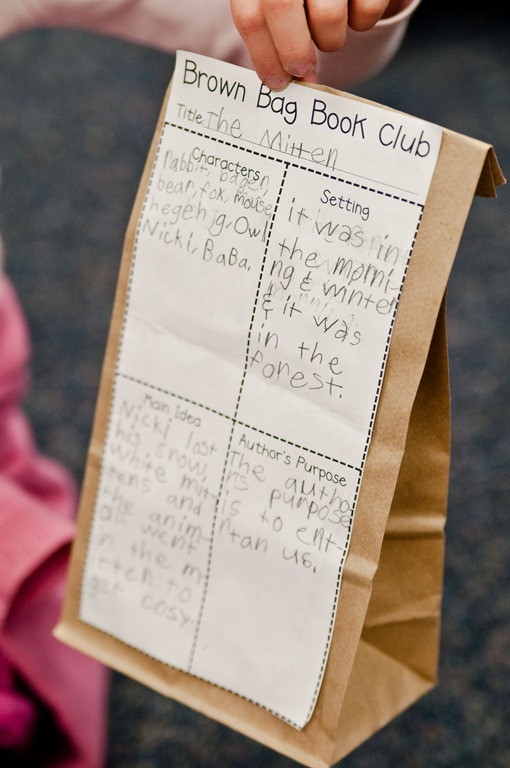 Brown Bag Book Club
Title: The Mitten
Characters
rabbit, bager,
bear, fox, mouse
hegehig, Owl
Nicki, BaBa,
Setting
it was in
the morni-
ng & winter
& it was
in the
forest.
Main Idea
Nicki last
his snow
white mit-
tens and
the anim-
all went
in the m
itten to
get cosy.
Author's Purpose
The autho
rs purpose
is to ent-
ntan us.